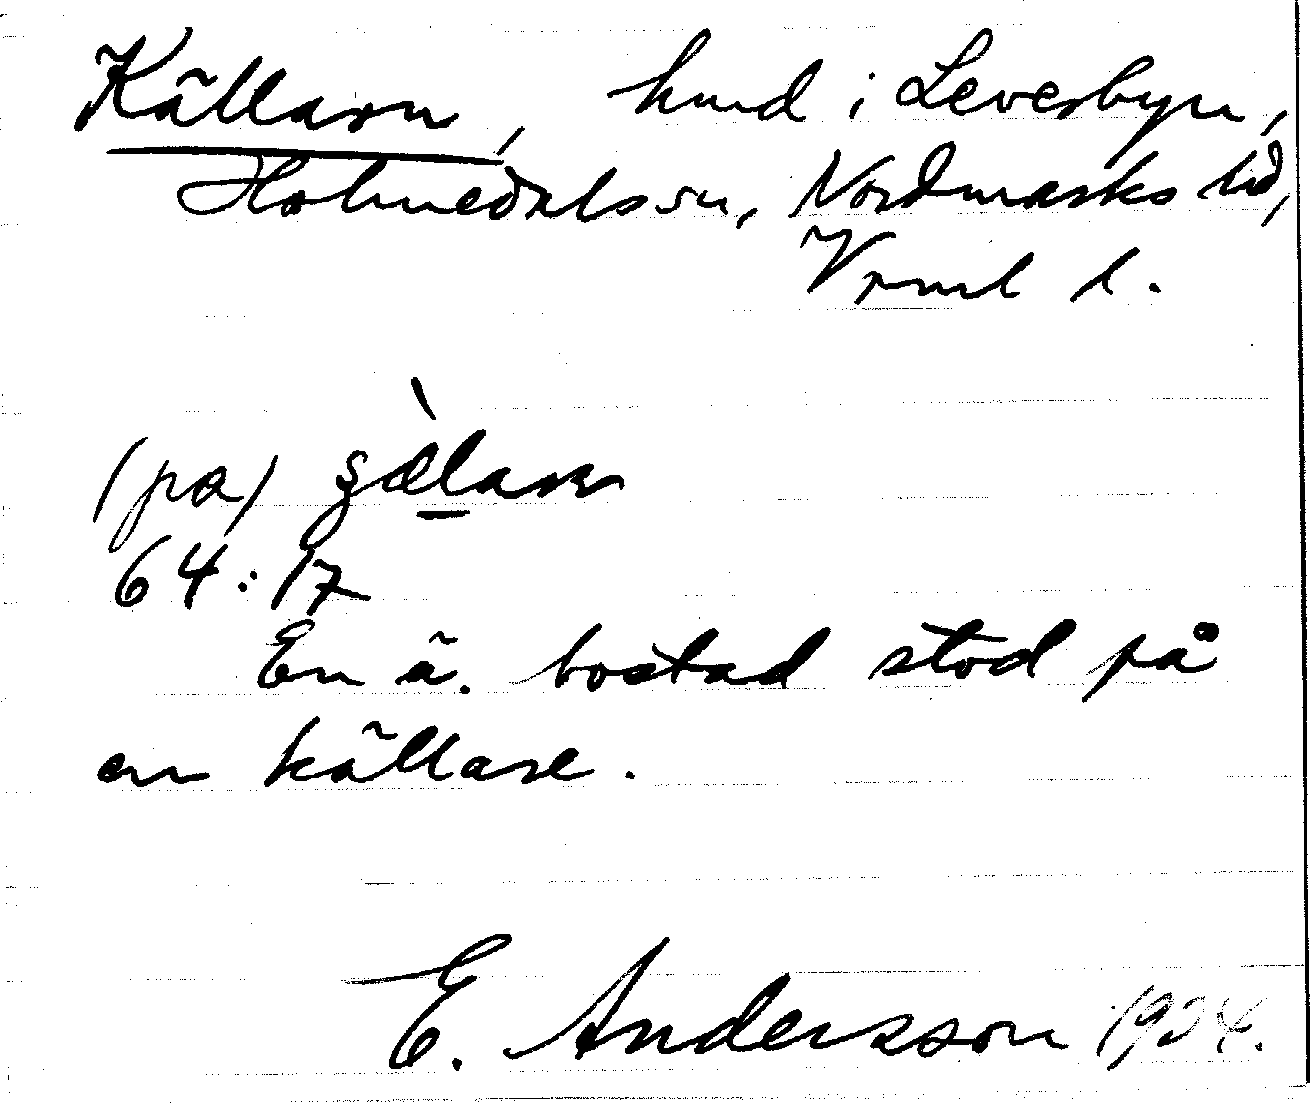 Källarn, hmd i Leverbyn,
Holmedals sn, Nordmarks hd,
Vrml l.
(pa)
64:17
En ä. bostad stod på
en källare.
E. Andersson 1924.